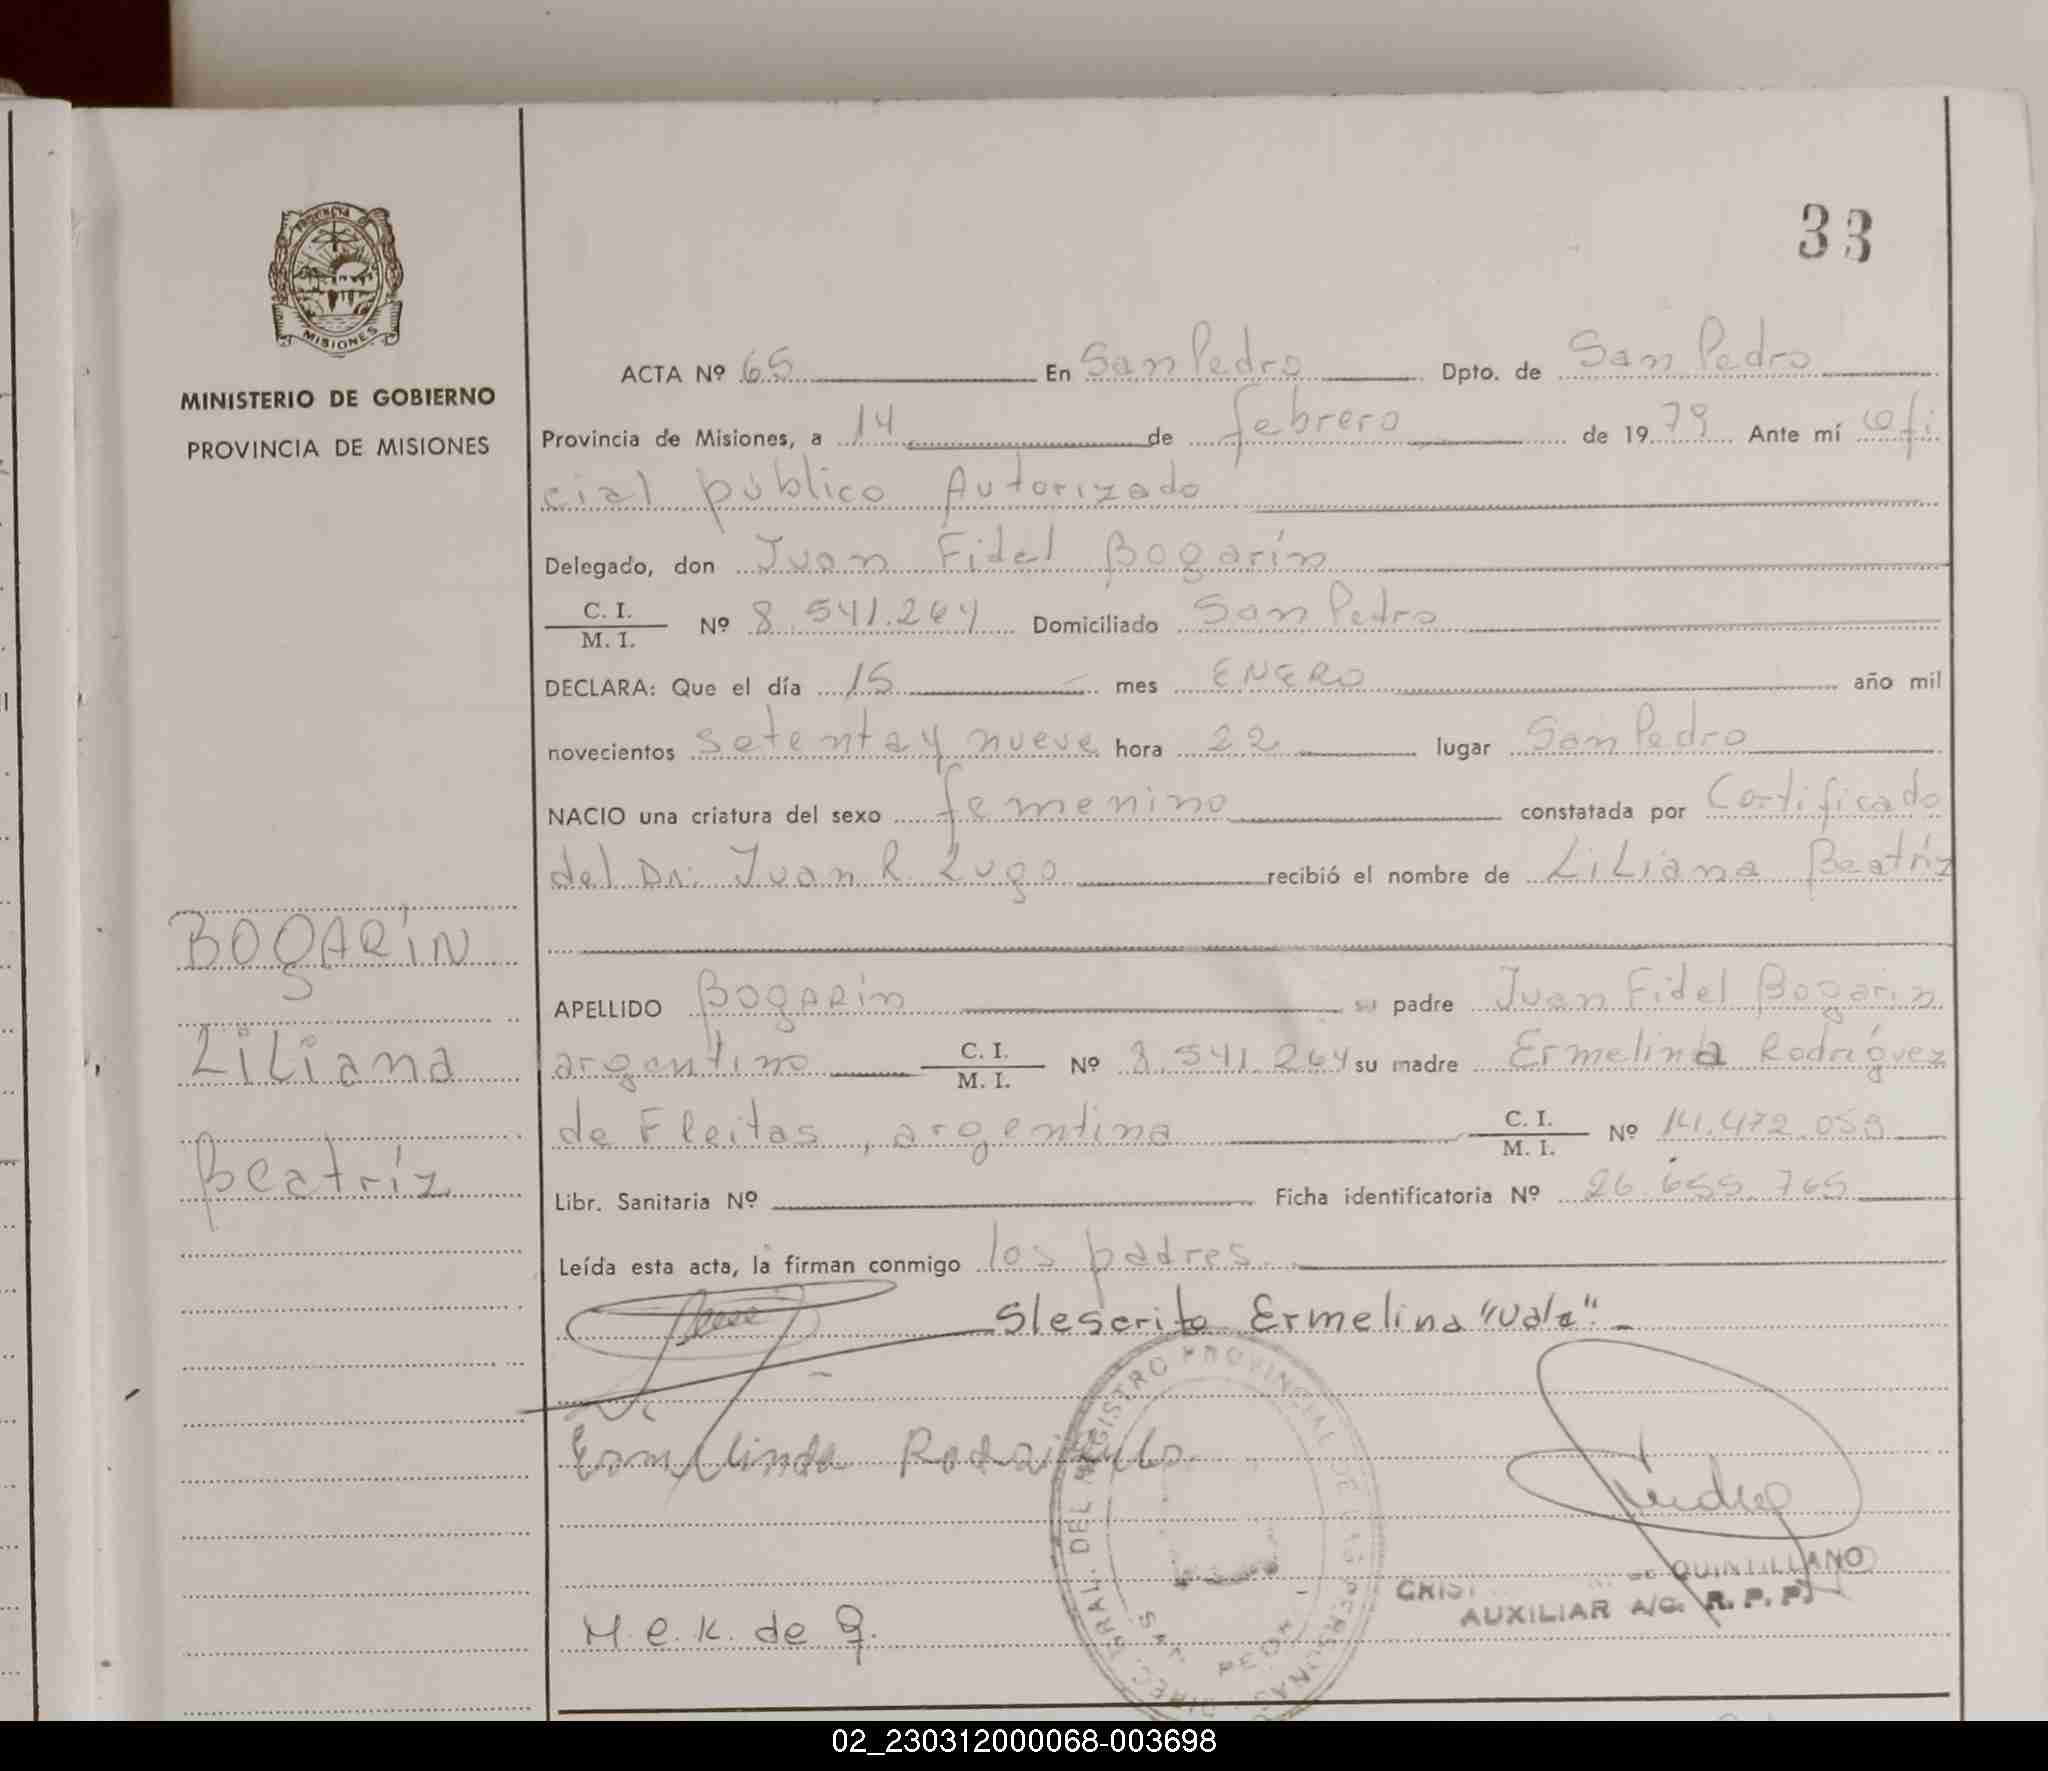 33
PROVINCIA
MISIONES
MINISTERIO DE GOBIERNO
PROVINCIA DE MISIONES
BOGARÍN
Liliana
Beatríz
ACTA Nº 65 En San Pedro Dpto. de San Pedro
Provincia de Misiones, a 14 de febrero de 1979 Ante mí Ofi
cial público Autorizado
Delegado, don Juan Fidel Bogarín
C. I.
M. I. Nº 8.541.264 Domiciliado San Pedro
DECLARA: Que el día 15 mes ENERO año mil
novecientos setenta y nueve hora 22 lugar San Pedro
NACIO una criatura del sexo femenino constatada por Certificado
del Dr. Juan R. Lugo recibió el nombre de Liliana Beatríz
APELLIDO Bogarín su padre Juan Fidel Bogarín
argentino C. I.
M. I. Nº 8.541.264 su madre Ermelinda Rodríguez
de Fleitas, argentina C. I.
M. I. Nº 14.472.059
Libr. Sanitaria Nº Ficha identificatoria Nº 26.655.765
Leída esta acta, la firman conmigo los padres.
S/escrito Ermelina "Vale".
Ermelinda
DIREC. GRAL. DEL REGISTRO PROVINCIAL DE LAS PERSONAS
SAN PEDRO
QUINTILLANO
AUXILIAR A/C. R. P. P.
M. e. K. de Q.
02_230312000068-003698